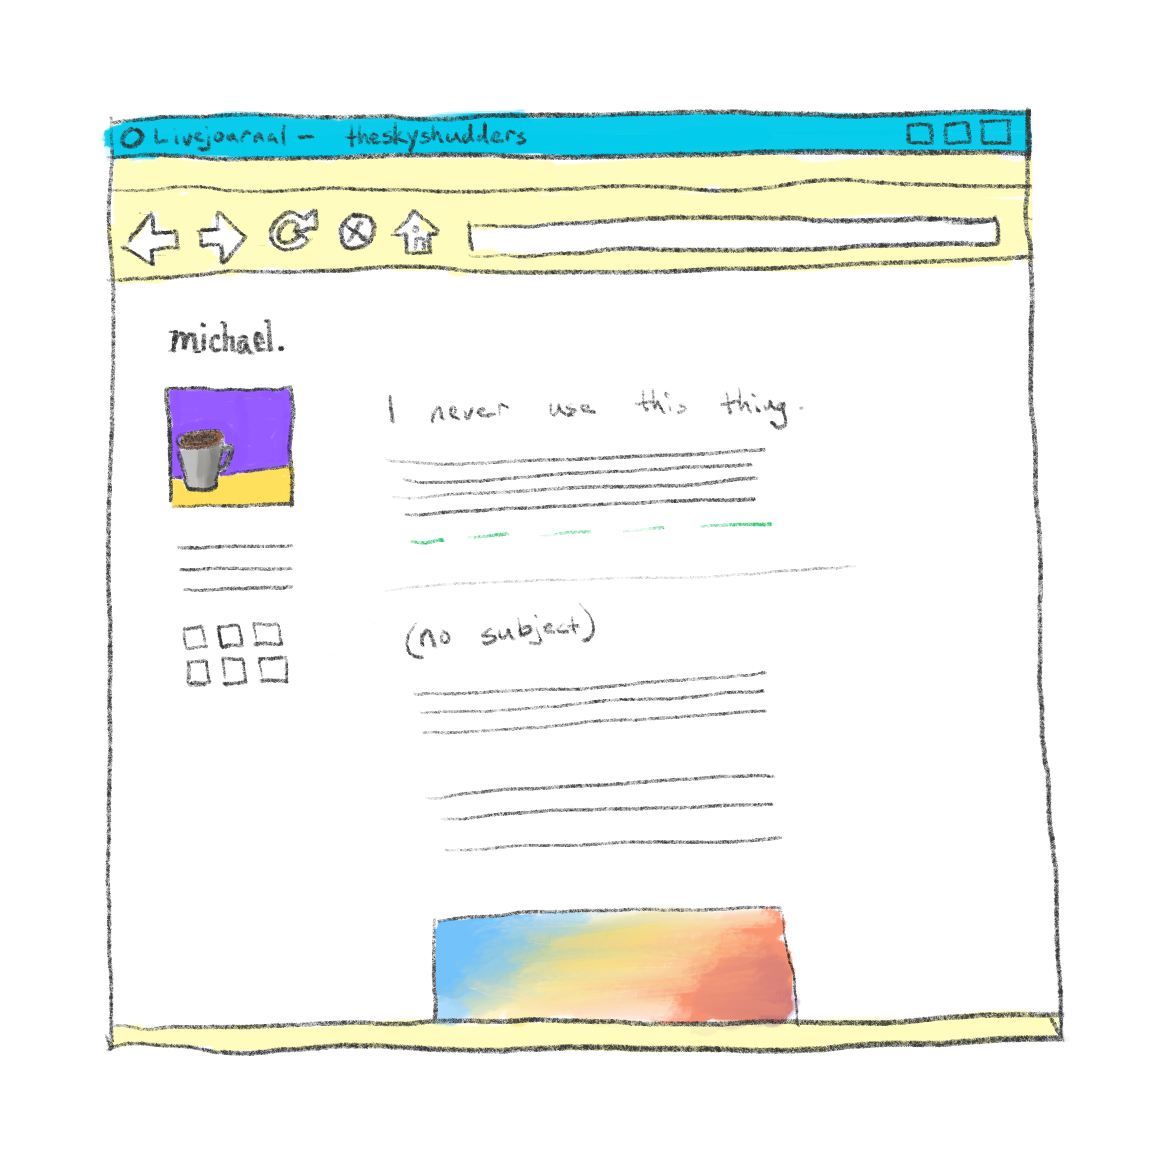 Livejournal - theskyshudders
michael.
I never use this thing.
(no subject)